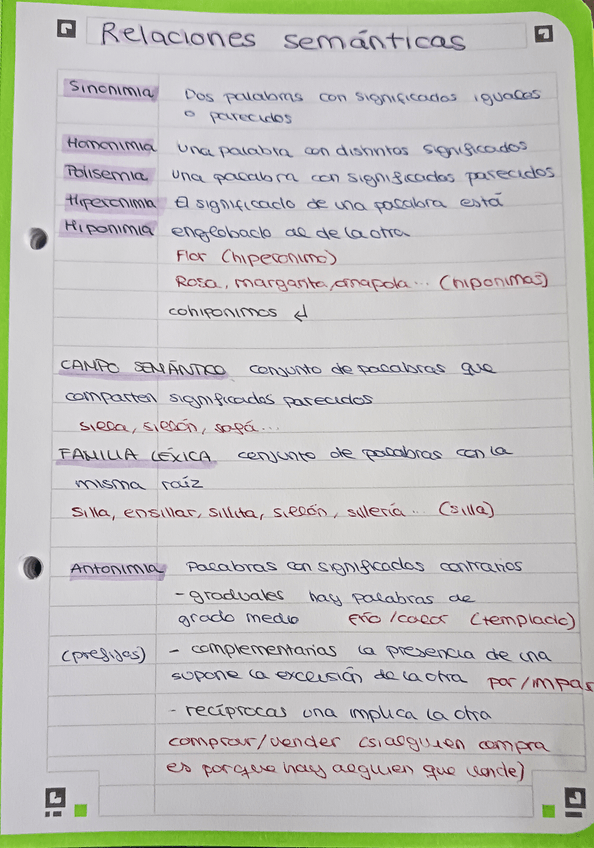 Relaciones semánticas
Sinonimia Dos palabras con significados iguales
o parecidos
Homonimia una palabra con distintos significados
Polisemia una palabra con significados parecidos
Hiperonimia El significado de una palabra está
Hiponimia englobado al de la otra
Flor (hiperonimo)
Rosa, margarita, amapola... (hiponimas)
cohiponimos ↲
CAMPO SEMÁNTICO conjunto de palabras que
comparten significados parecidos
silla, sillón, sofá...
FAMILIA LÉXICA conjunto de palabras con la
misma raíz
silla, ensillar, sillita, sillón, sillería... (silla)
Antonimia Palabras con significados contrarios
- graduales hay palabras de
grado medio frío /calor (templado)
(prefijos) - complementarias la presencia de una
supone la exclusión de la otra par/impar
- recíprocas una implica la otra
comprar/vender (si alguien compra
es porque hay alguien que vende)